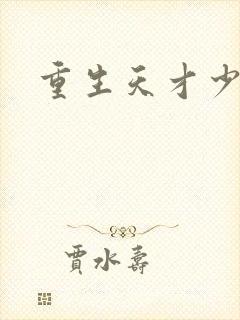 重生天才少
贾水寿